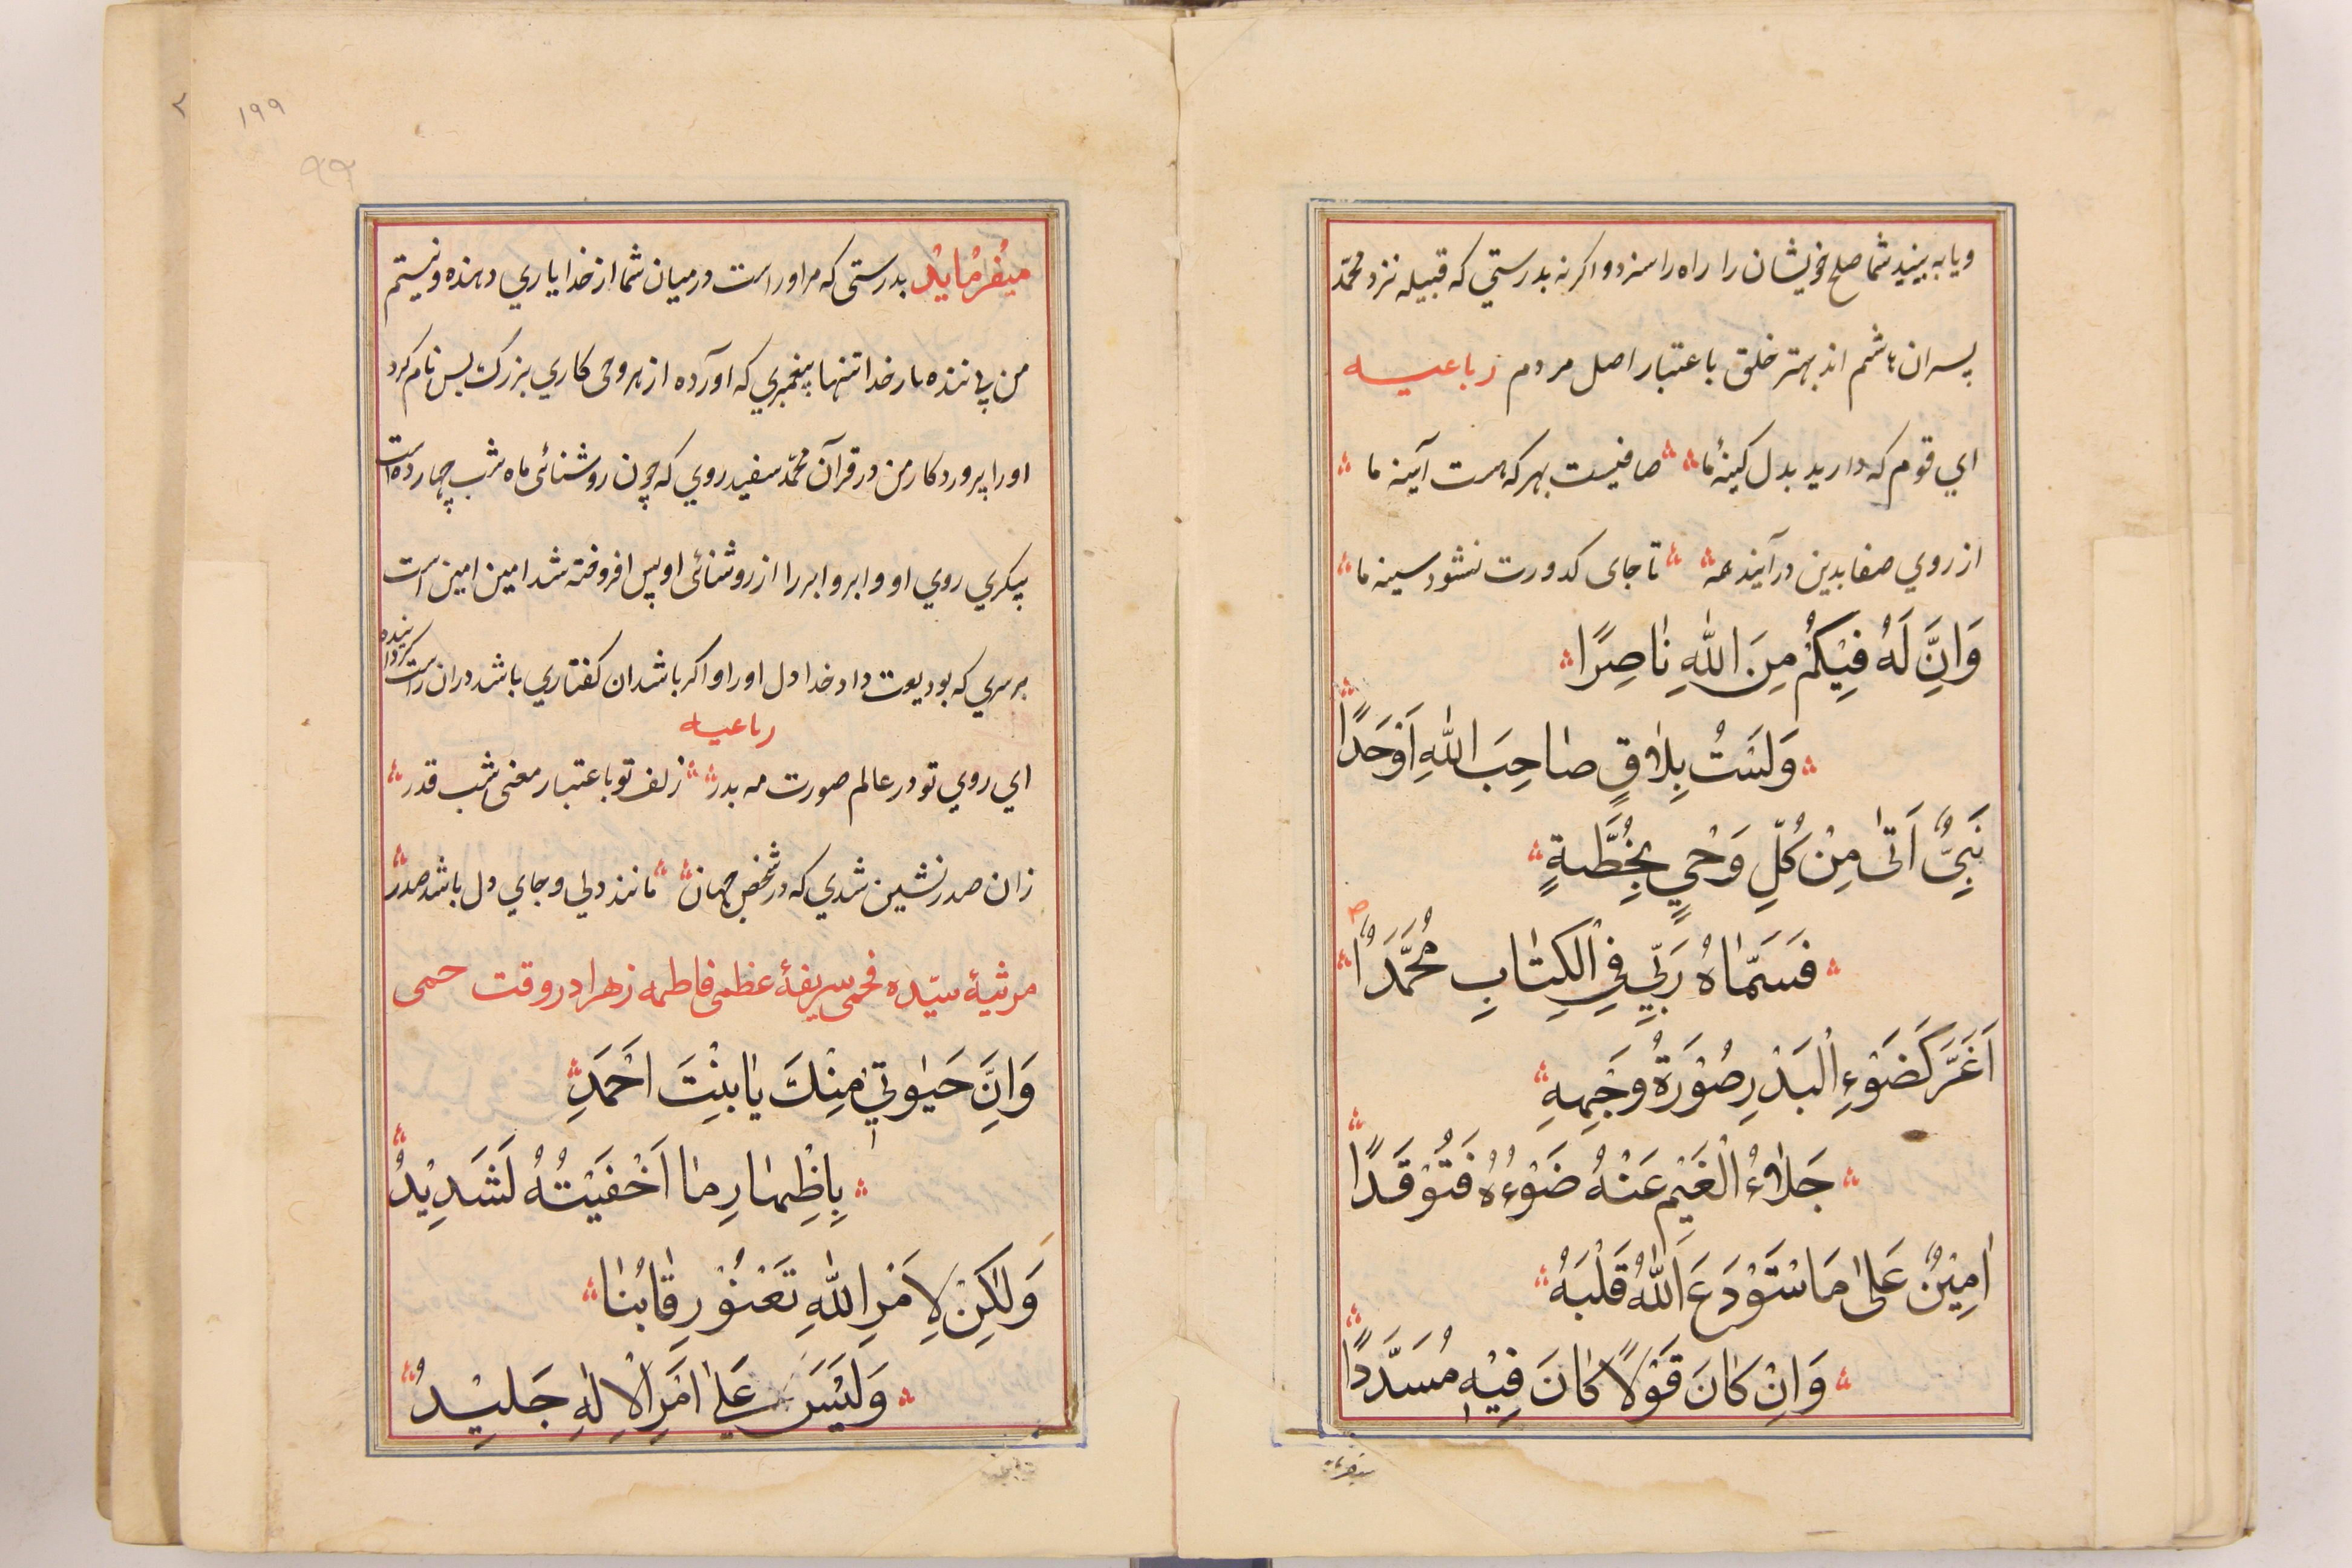 ویا به بینید شما صلح خویشان را راه راسزد و اکر نه بدرستی که قبیله نزد محمّد
پسران هاشم اند بهتر خلق باعتبار اصل مردم رباعیه
اي قوم که دارید بدل کینۀ ما صافیست بهر که هست آینه ما
از روي صفا بدین درآیند همه تا جای کدورت نشود سینه ما
وَاِنَّ لَهُ فِيْكُمْ مِنَ اللهِ نٰاصِرًا
وَلَسْتُ بِلاٰقٍ صٰاحِبَ اللهِ اَوْحَدًا
نَبِيٌّ اَتٰى مِنْ كُلِّ وَحْيٍ بِخُِطَّةٍ
فَسَمّٰاهُ رَبّي فِي الْكِتٰابِ مُحَمَّدًا
اَغَرَّ كَضَوْءِ الْبَدْرِ صُوْرَةُ وَجْهِهِ
جَلاٰءُ الْغَيْمِ عَنْهُ ضَوْءُهُ فَتَوْقَدًا
اَمِيْنٌ عَلىٰ مَا اسْتَوْدَعَ اللهُ قَلْبَهُ
وَاِنْ كٰانَ قَوْلاً كٰانَ فِيْهِ مُسَدَّدًا
۱۹۹
۹۹
میفرماید بدرستی که مر اوراست در میان شما از خدا یاري دهنده ونیستم
من پي ننده یار خدا تنها پیغمبري که آورده از هر وحی کاري بزرك پس نام کرد
اورا پروردکار من در قرآن محمّد سفید روي که چون روشنائی ماه شب چهارده است
پیکري روي او و ابر و ابر را از روشنائی او پس افروخته شد امین امین است
بر سري که بودیعت داد خدا دل اورا و اکر باشد ان کفتاري باشد دران راست کرداننده
رباعیه
اي روي تو در عالم صورت مه بدر زلف تو باعتبار معنی شب قدر
زان صدر نشین شدي که در شخص جهان مانند دلی و جاي دل باشد صدر
مرثیۀ سیّده فحمی سریفۀ عظمی فاطمه زهرا در وقت حمی
وَاِنَّ حَيٰوتي مِنْكَ يٰا بِنْتَ اَحْمَدِ
بِاِظْهٰارِ مٰا اَخْفَيْتُهُ لَشَدِيْدٌ
وَلٰكِنْ لِاَمْرِ اللهِ تَعْنُوْ رِقٰابُنٰا
وَلَيْسَ عَلىٰ اَمْرِ الْاِلٰهِ جَلِيْدٌ